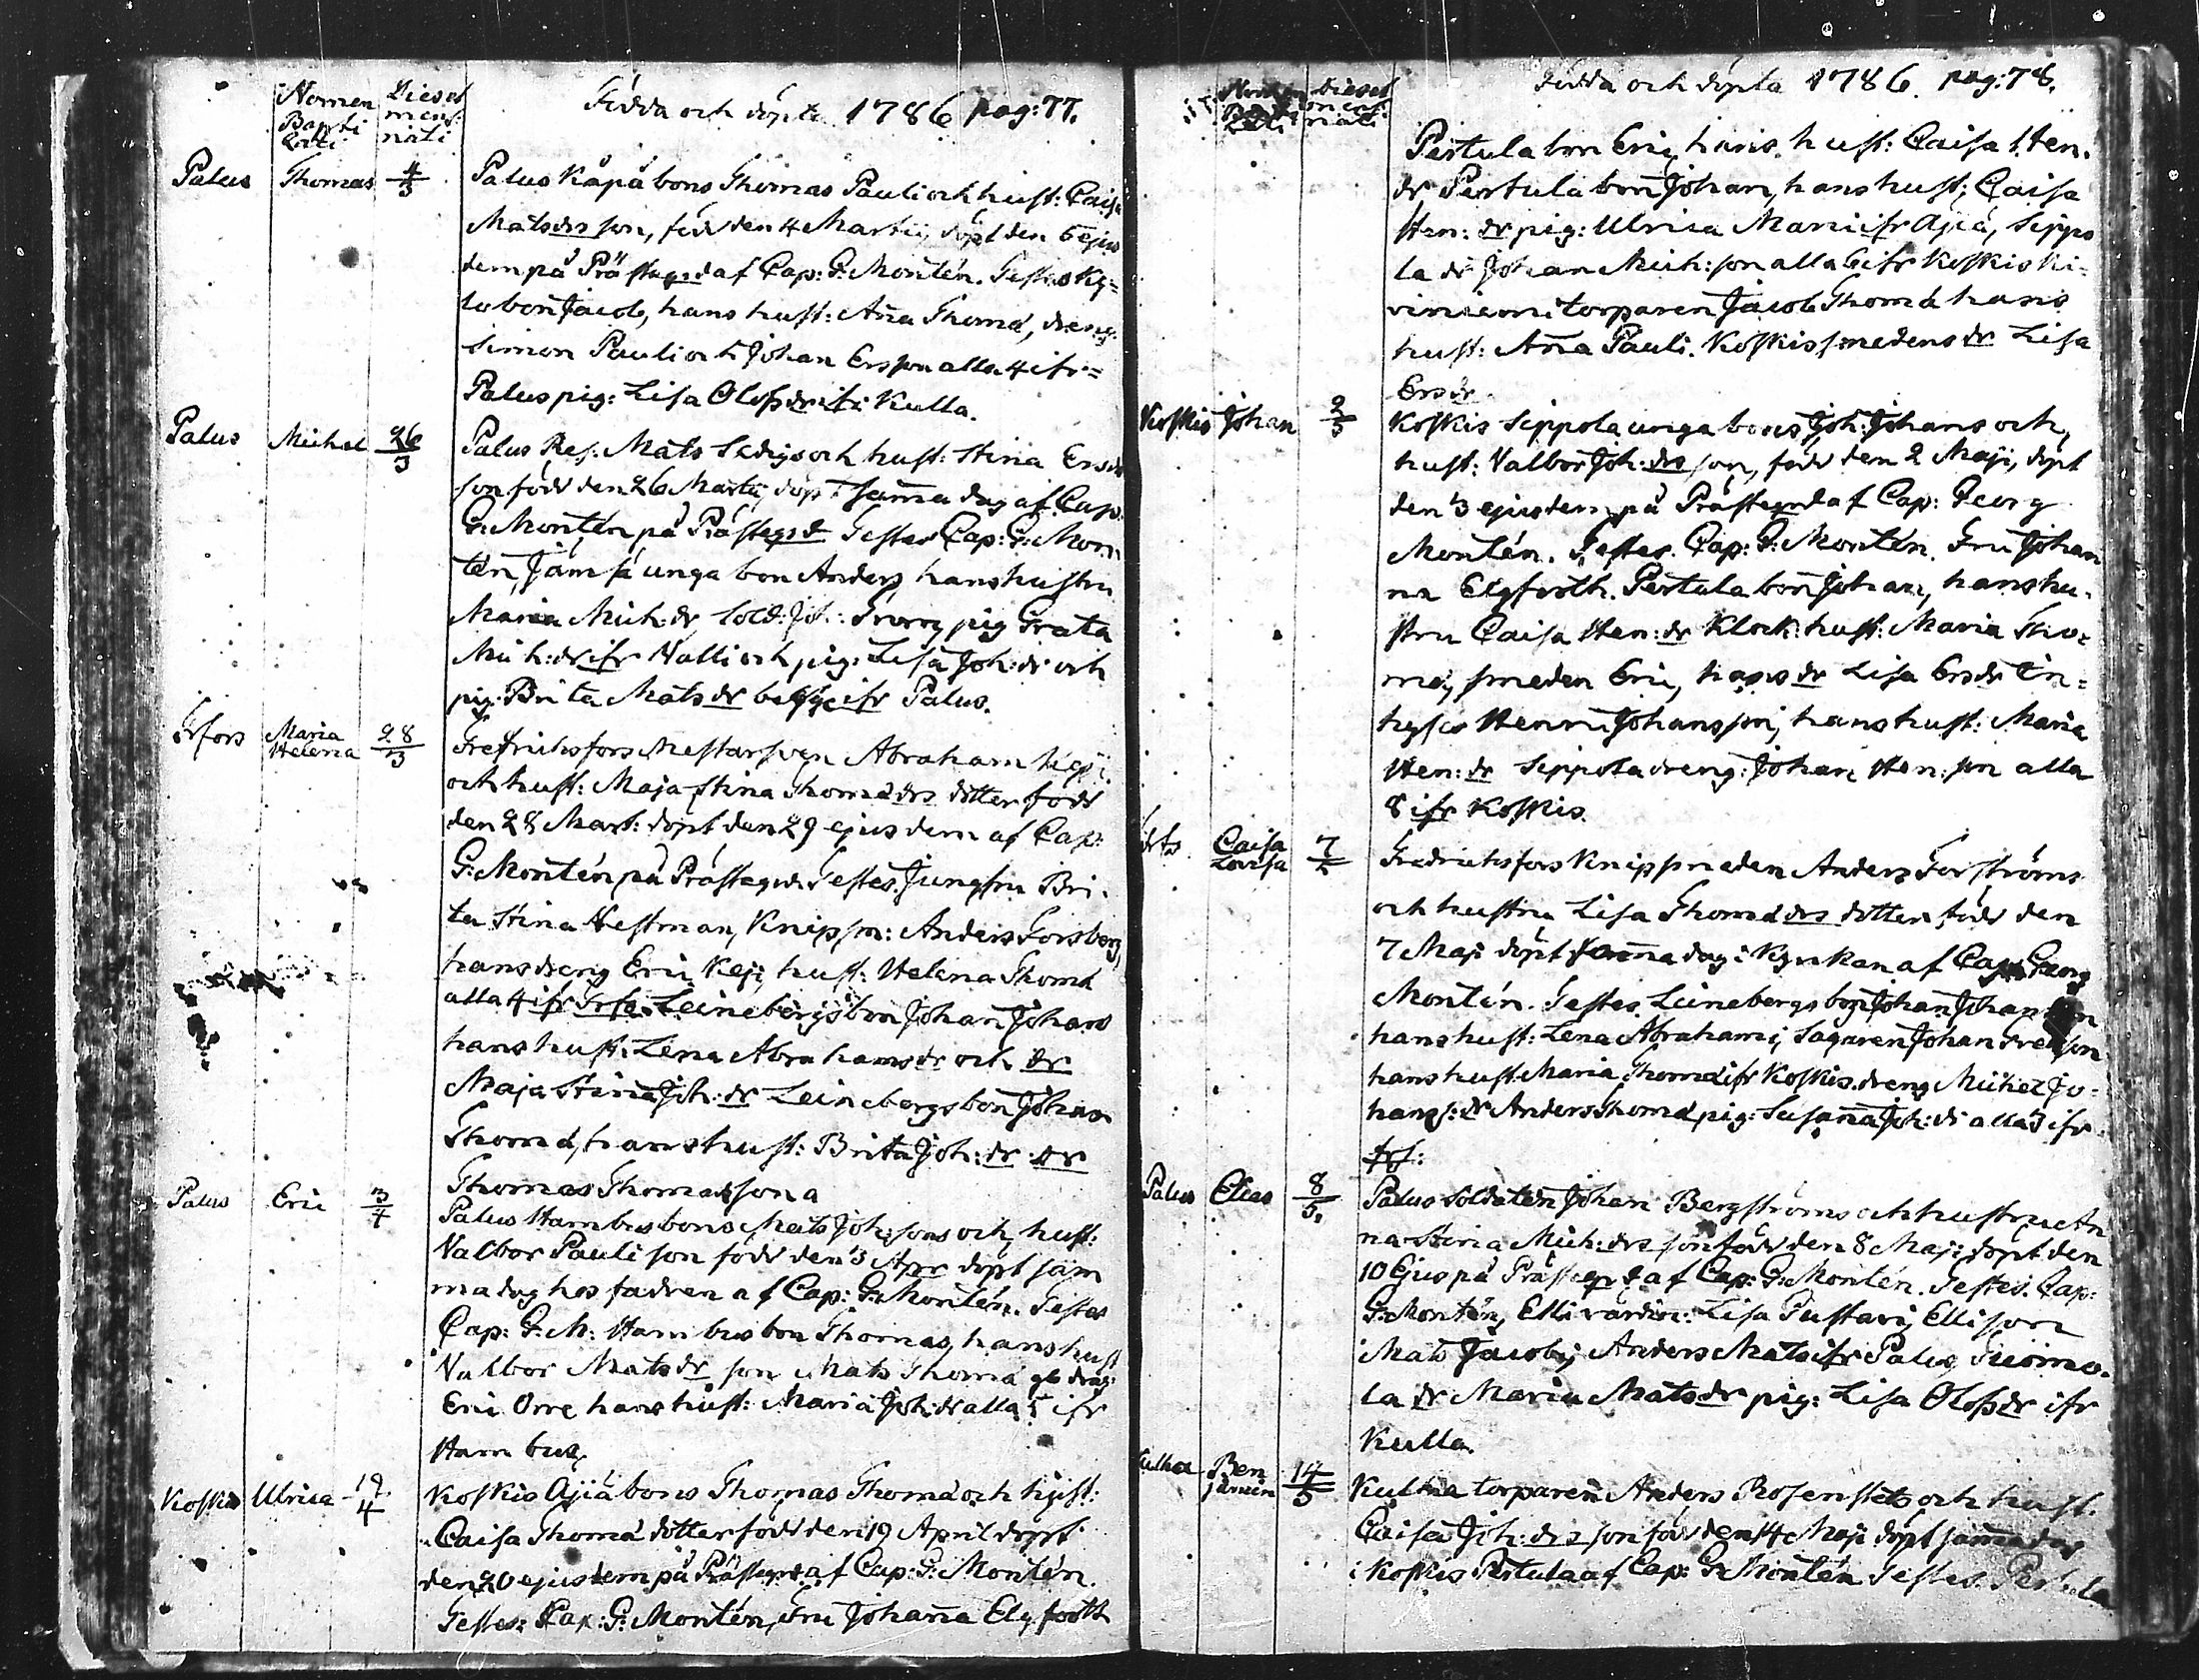 Nomen Dies et
Bapti mens:
zati nati
Födda och döpte 1786 pag: 77.
Palus Thomas 4/3 Palus Kåpåbons Thomas Pauli och hust: Caisa
Matsdrs son, född den 4 Martii, döpt den 5 ejus
dem på Prästeg:d af Cap: G: Montén. Testes Ky=
lo bon Jacob, hans hust: Aña Thomæ, dreng:
Simon Pauli och Johan Ersson alla 4 ifr=
Palus pig: Lisa Olofsdr ifr: Kulla.
Palus Michel 26/3 Palus Res: Mats Sedigs och hust: Stina Ersdrs
son född den 26 Martij, döpt sam̄a dag af Cap:
G: Montén på Prästeg:d Testes Cap: G: Mon
tén, Jämsä unga bon Anders, hans hustru
Maria Mich: dr, sold: Joh: pig Greta
Mich: dr ifr Nalli och pig: Lisa Joh: dr och
pig: Brita Mats dr begge ifr Palus.
Frfors Maria Helena 28/3 Fredrichsfors Mestarsven Abraham
och hust: Maja Stina Thomæ drs dotter född
den 28 Mart: döpt den 29 ejusdem af Cap:
G: Montén, på Prästeg:d. Testes. Jungfru Bri-
ta Stina Westman, Knipsm: Anders Forsberg,
hans dreng Eric hust: Helena Thomæ
alla 4 ifr Frfs. Leinebergs bon Johan Johans
hans hust: Lena Abrahams dr och dr
Maja Stina Joh: dr Leinebergs bon Johan
Thomæ, hans hust: Brita Joh: dr dr
Thomas Thomasson a
Palus Eric 3/4 Palus Hambus bons Mats Joh: sons och hust:
Valbor Pauli son född den 3 Apr döpt sam
ma dag hos fadren af Cap: G: Montén. Testes
Cap: G: M: Hambus bon Thomas, hans hust
Valbor Mats dr son Mats Thomæ gl dräg:
Eric Orre hans hust: Maria Joh: dr alla 5 ifr
Hambus,
Koskis Ulrica 19/4 Koskis Ajiä bons Thomas Thomæ och hust:
Caisa Thomæ dotter född den 19 April döpt
den 20 ejusdem på Prästeg:d af Cap: G: Montén.
Testes: Cap: G: Montén, Fru Johan̄a Elgfooth
Nomen Dies et
Bapti mens:
zati nati
Födda och döpta 1786. pag: 78.
Pertula bon Eric, hans hust: Caisa Hen:
dr Pertula bon Johan, hans hust: Caisa
Hen: dr pig: Ulrica Marci ifr Ajiä, Sippo
la dr Johan Mich: son alla 6 ifr Koskis Ki=
viniemi torparen Jacob Thomæ hans
hust: Aña Pauli. Koskis smedens dr Lisa
Ersdr.
Koskis Johan 2/5 Koskis Sippola unga bons Joh: Johans och,
hust: Valbor Joh: drs son, född den 2 Maji, döpt
den 3 ejusdem på Prästeg:d af Cap: Georg
Montén. Testes. Cap: G: Montén. Fru Johan
na Elgfooth. Pertula bon Johan, hans hu-
stru Caisa Hen: dr Klock: hust: Maria Tho-
mæ, smeden Eric, hans dr Lisa Ersdr In=
hyses Henric Johansson, hans hust: Maria
Hen: dr Sippola dreng: Johan Hen: son alla
8 ifr Koskis.
Frfs Caisa Lovisa 7/5 Fredrichsfors Knipsmeden Anders Forströms
och hustru Lisa Thomæ drs dotter född den
7 Maji döpt sam̄a dag i Kyrkan af Cap: Georg
Montén. Testes Leinebergs bon Johan Johansson
hans hust: Lena Abrahami, Sagaren Johan
hans hust: Maria Thomæ ifr Koskis dreng Michel Jo-
hans: dr Anders Thomæ pig: Susan̄a Joh: dr alla 3 ifr
frf:
Palus Elias 8/5. Palus Soldaten Johan Bergströms och hustru An
na Stina Mich: drs son född den 8 Maji döpt den
10 Ejus på Prästeg:d af Cap: G: Montén. Testes. Cap:
G: Montén, Elli värdin: Lisa Gustavi, Elli son
Mats Jacobi, Anders Mats ifr Palus, Tuomo-
la dr Maria Mats dr pig: Lisa Olofsdr ifr
Kulla.
Kulha Ben jamin 14/5 Kulha torparen Anders Rosenstets och hust.
Caisa Joh: drs son född den 14 Maji döpt sam̄a dag
i Koskis Pertula af Cap: G: Montén Testes. Pertula